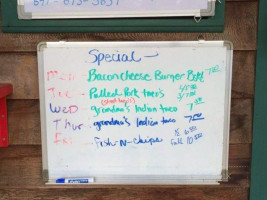 Special
Mon - Bacon cheese Burger
Tue - Pulled Pork taco's
WED - grandma's Indian taco 7.00
Thur - grandma's Indian taco 7.00
Fri - Fish-N-chips